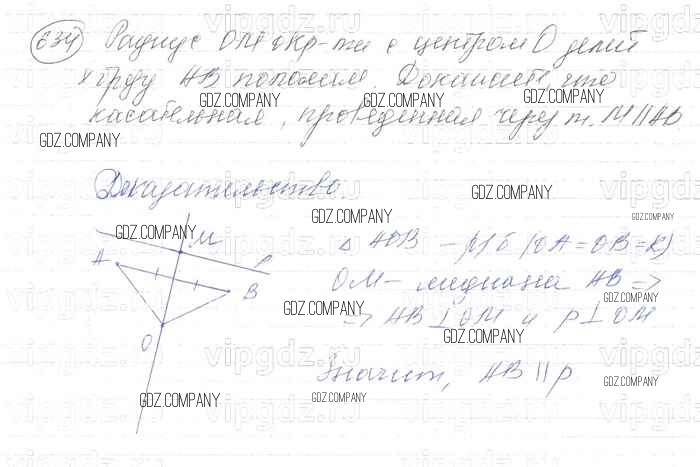 634 Радиус OM окр-ти с центром O делит
хорду AB пополам. Докажите, что
касательная, проведенная через т. M || AB
GDZ.COMPANY GDZ.COMPANY GDZ.COMPANY
GDZ.COMPANY
vipgdz.ru
Доказательство.
GDZ.COMPANY
GDZ.COMPANY GDZ.COMPANY GDZ.COMPANY
M
A P
B
O
△ AOB – р/б (OA = OB = R)
OM – медиана AB =>
GDZ.COMPANY GDZ.COMPANY
=> AB ⊥ OM и p ⊥ OM
GDZ.COMPANY
Значит, AB || p
GDZ.COMPANY
GDZ.COMPANY GDZ.COMPANY
vipgdz.ru